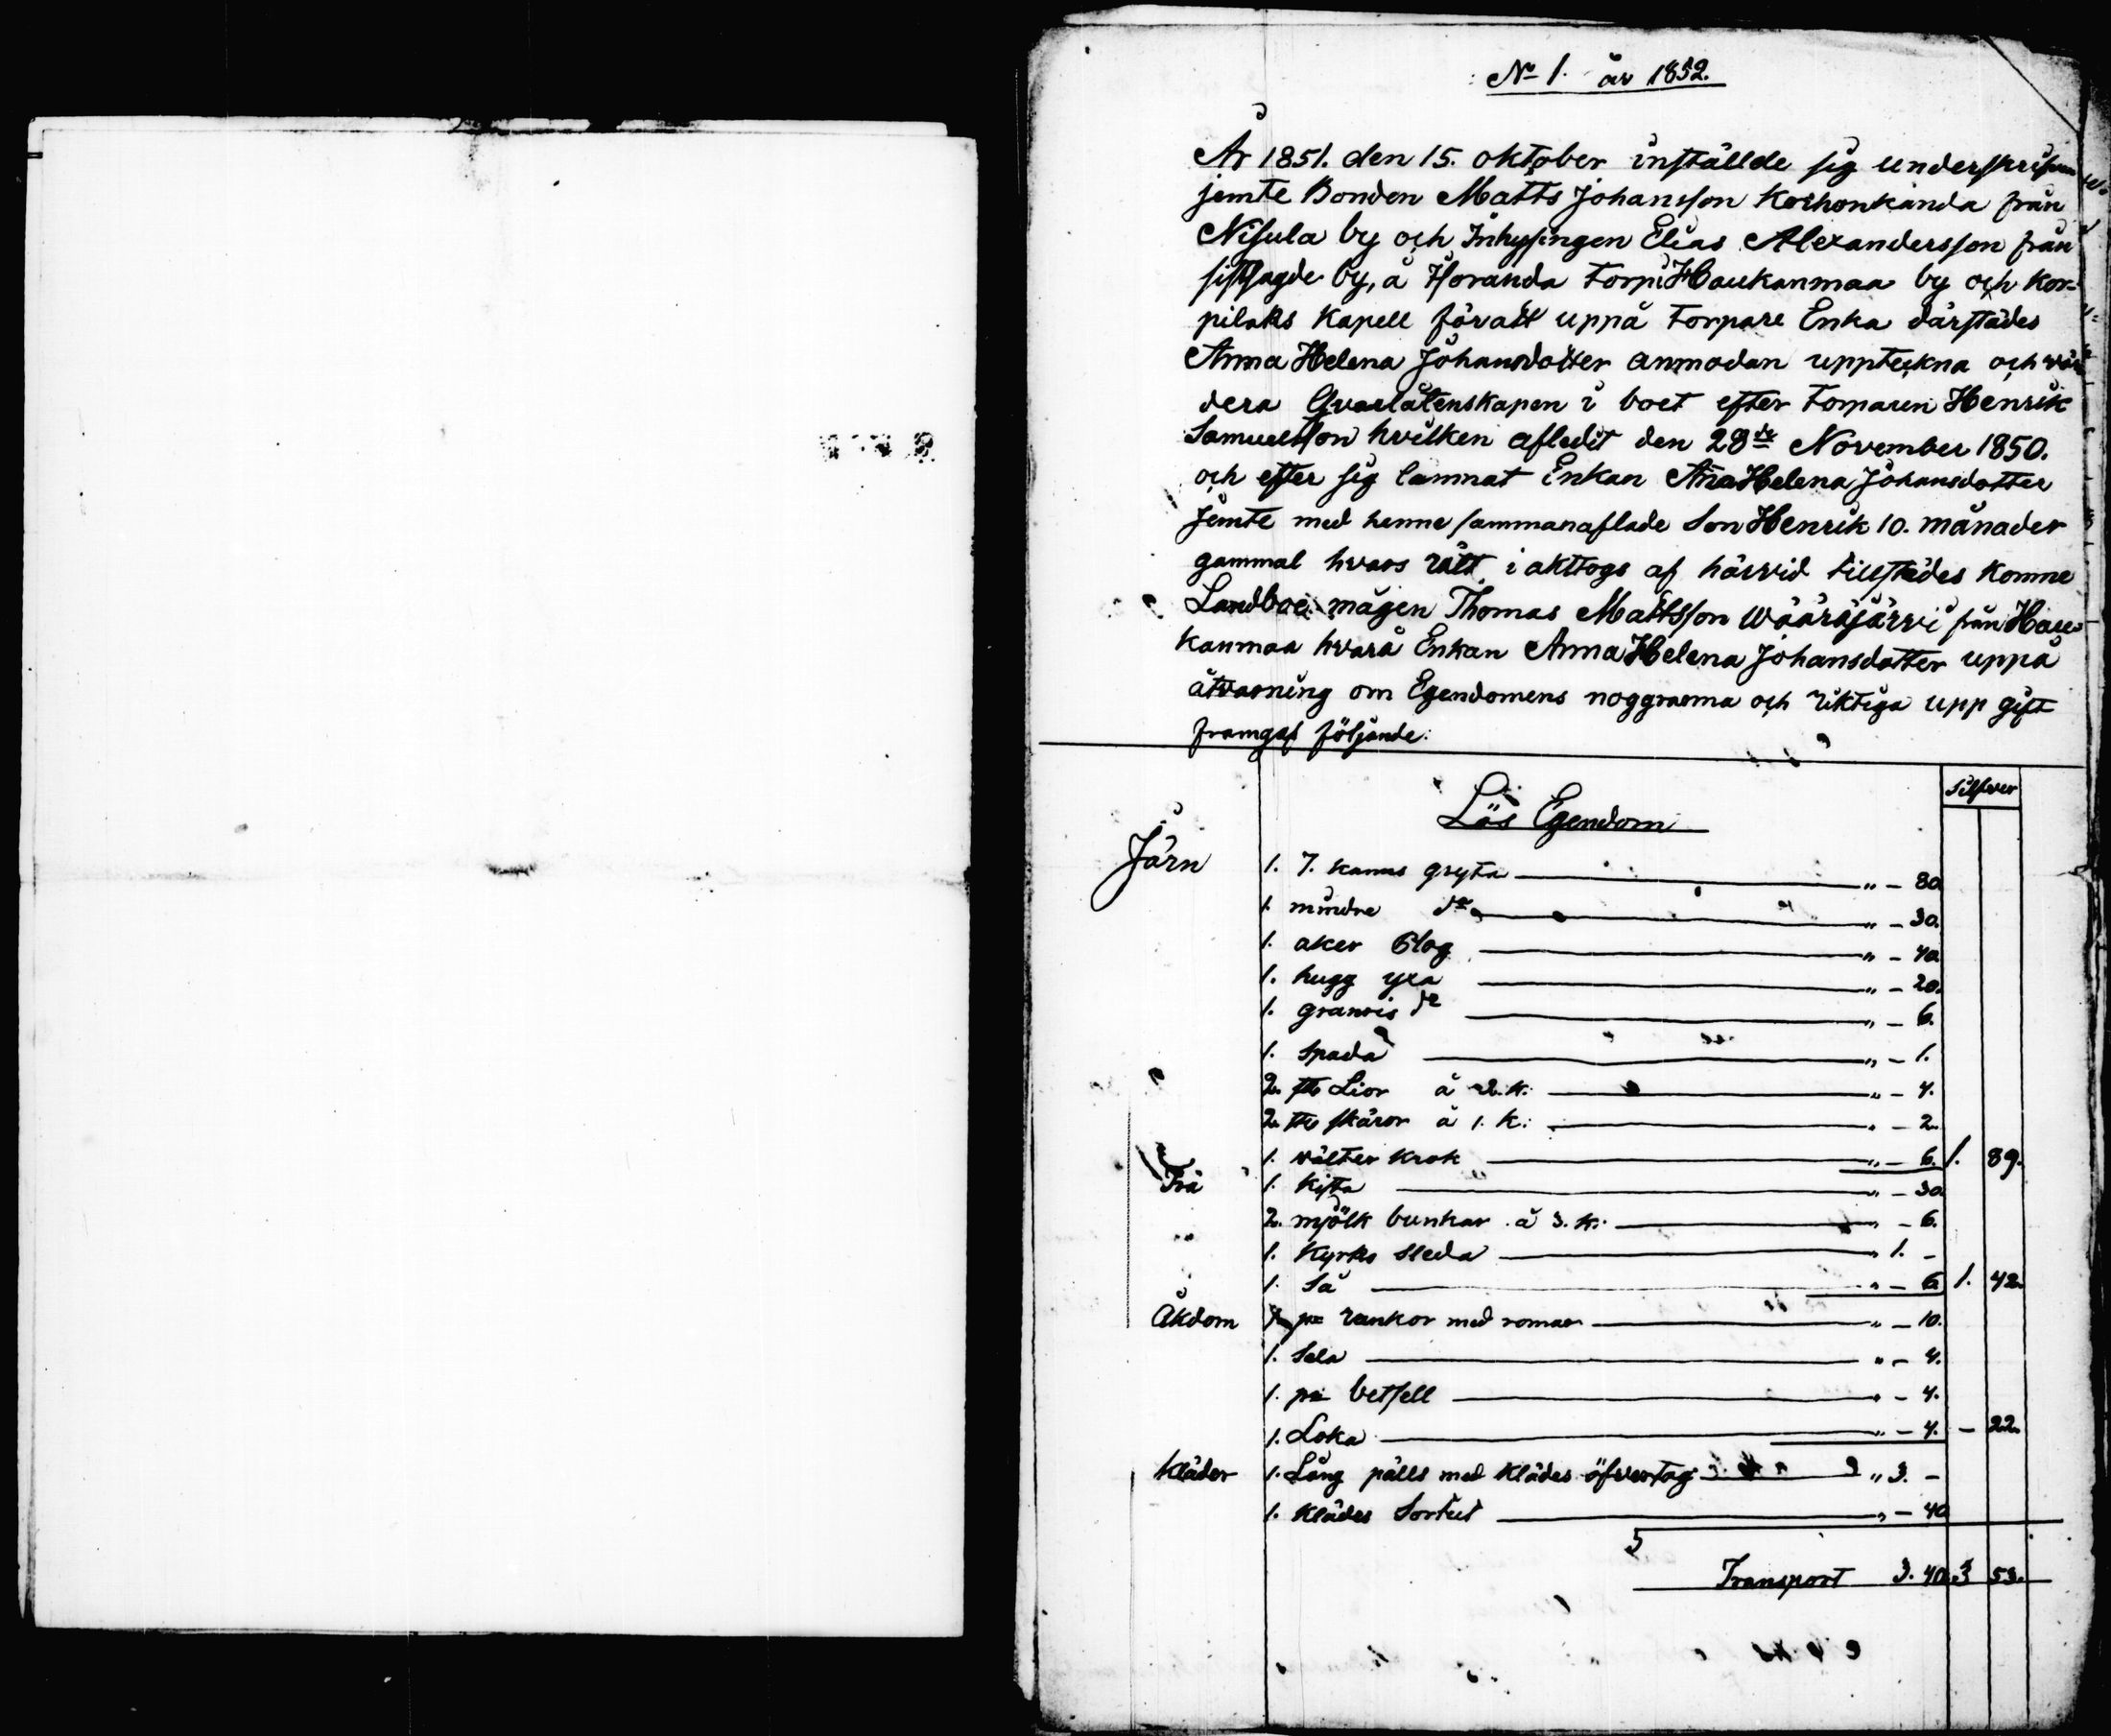 No 1. år 1852.
År 1851. den 15. oktober inställde sig underskrifven
jemte Bonden Matts Johansson Korhonkanda från
Nisula by och Inhysingen Elias Alexandersson från
sistsagde by, å Horanda Torp i Haukanmaa by och Kor-
pilaks Kapell föratt uppå Torpare Enka därstädes
Anna Helena Johansdotter anmodan uppteckna och vär
dera Qvarlåtenskapen i boet efter Torparen Henrik
Samuelsson hvilken afledit den 28de November 1850.
och efter sig lämnat Enkan Ana Helena Johansdotter
Jemte med henne sammanaflade Son Henrik 10. månader
gammal hvars rätt i akttogs af härvid tillstädes komne
Landboe mågen Thomas Mattsson Wääräjärvi från Hau-
kanmaa hvarå Enkan Anna Helena Johansdotter uppå
åtvarning om Egendomens noggranna och riktiga upp gift
framgaf följande:
Silfver
Lös Egendom
Järn 1. 7. kanns gryta " - 80
1. mindre do " - 30.
1. åker Plog " - 40
1. hugg yxa " - 20.
1. granris do " - 6.
1. Spada " - 1.
2. st Lior å 2. k: " - 4.
2. st skäror å 1. k: " - 2.
1. välter krok " - 6. 1. 89.
Trä 1. Kista " - 30
2. mjölk bunkar å 3. k: " - 6.
1. Kyrko Sleda " 1. -
1. Så " - 6 1. 42.
Åkdom pr rankor med romar " - 10.
1. Sela " - 4.
1. pr betsell " - 4.
1. Loka " - 4. - 22.
Kläder 1. Lång pälls med klädes öfvertag " 3. -
1. Klädes Sortut " - 40
Transport 3. 40. 3 53.